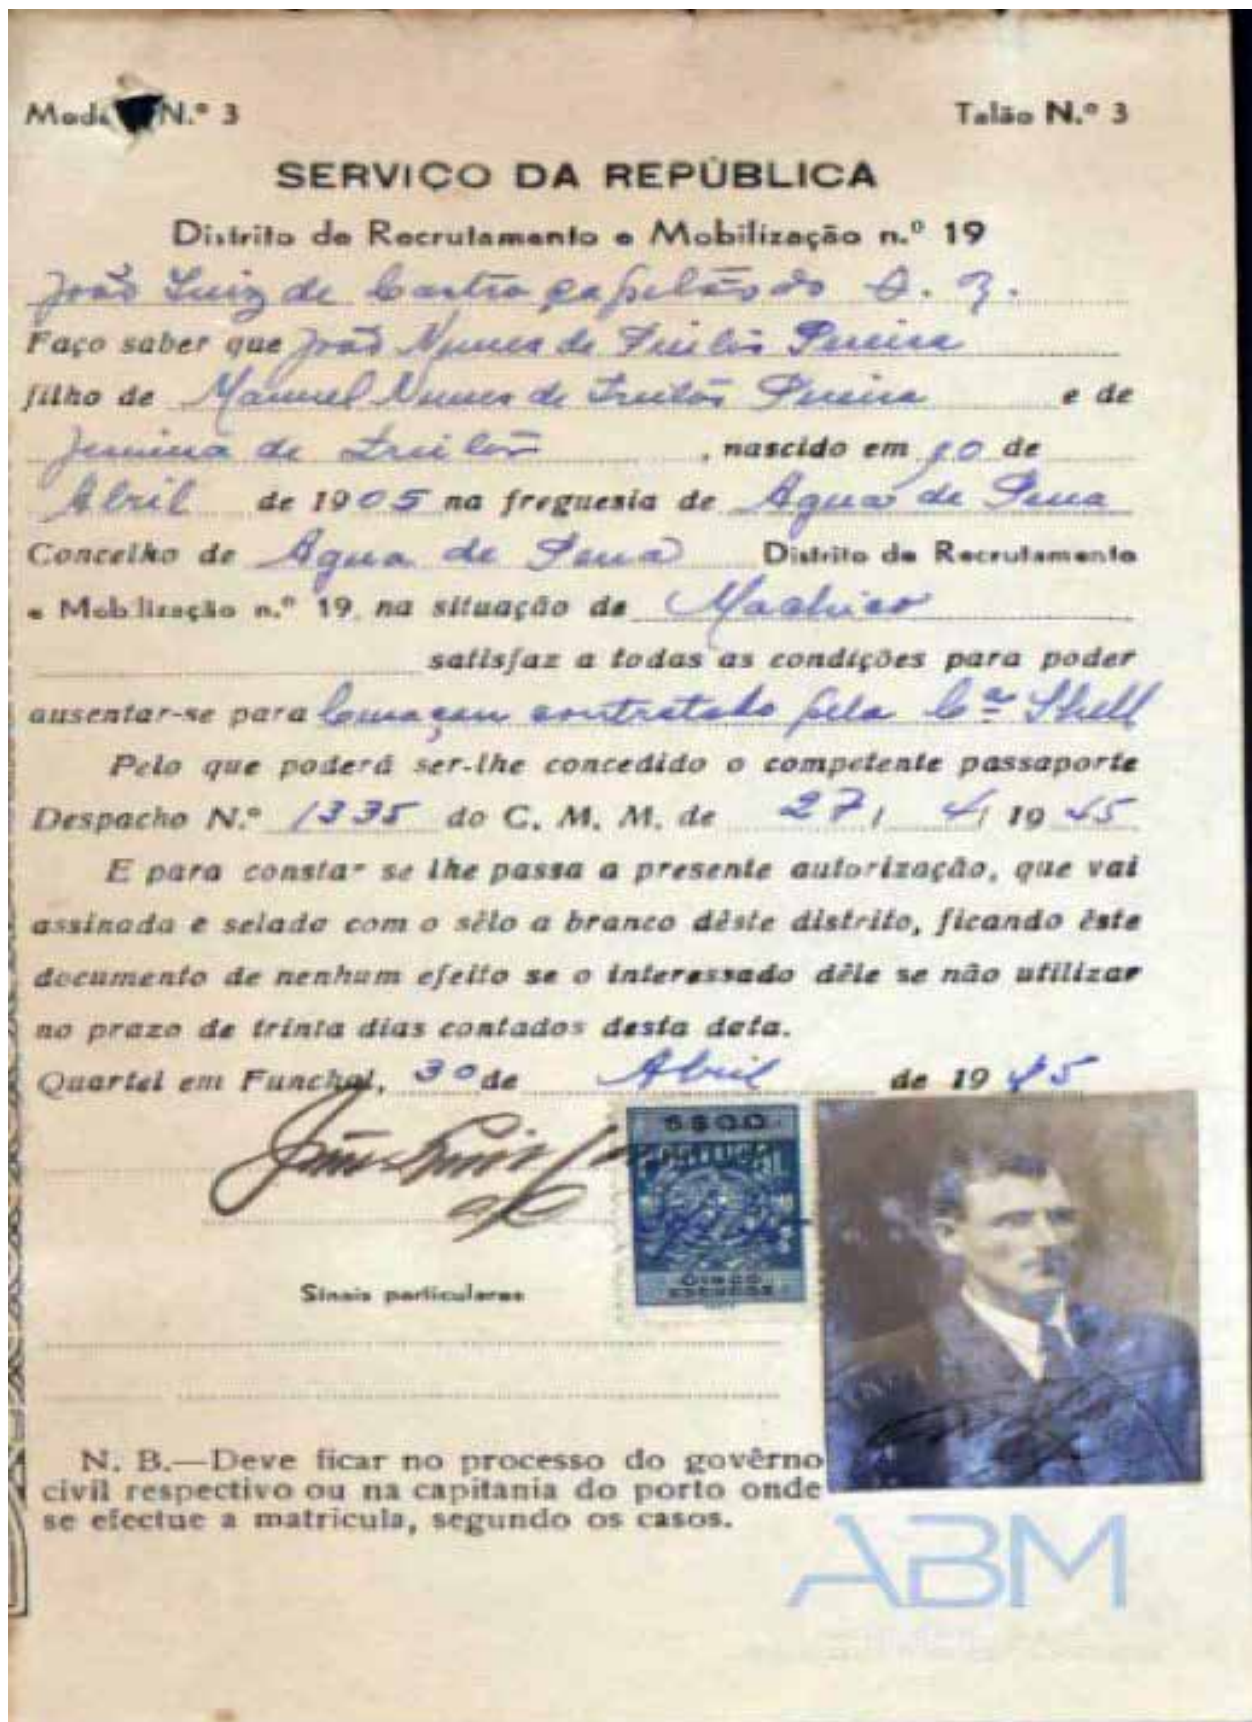 N.º 3 Talão N.º 3
SERVIÇO DA REPÚBLICA
Distrito de Recrutamento e Mobilização n.º 19
João Luiz de Castro capitão do
Faço saber que João Nunes de Pereira
filho de Manuel Nunes de Pereira e de
de , nascido em de
Abril de 1905 na freguesia de Agua de Pena
Concelho de Agua de Pena Distrito de Recrutamento
e Mobilização n.º 19, na situação de Machico
satisfaz a todas as condições para poder
ausentar-se para Curaçau contratado pela C.ª Shell
Pelo que poderá ser-lhe concedido o competente passaporte
Despacho N.º 1335 do C. M. M. de 27 / 4 / 19 45
E para constar se lhe passa a presente autorização, que vai
assinada e selada com o sêlo a branco dêste distrito, ficando êste
documento de nenhum efeito se o interessado dêle se não utilizar
no prazo de trinta dias contados desta data.
Quartel em Funchal, 30 de Abril de 19 45
5$00
CINCO
ESCUDOS
Sinais particulares
N. B.—Deve ficar no processo do govêrno
civil respectivo ou na capitania do porto onde
se efectue a matricula, segundo os casos.
ABM